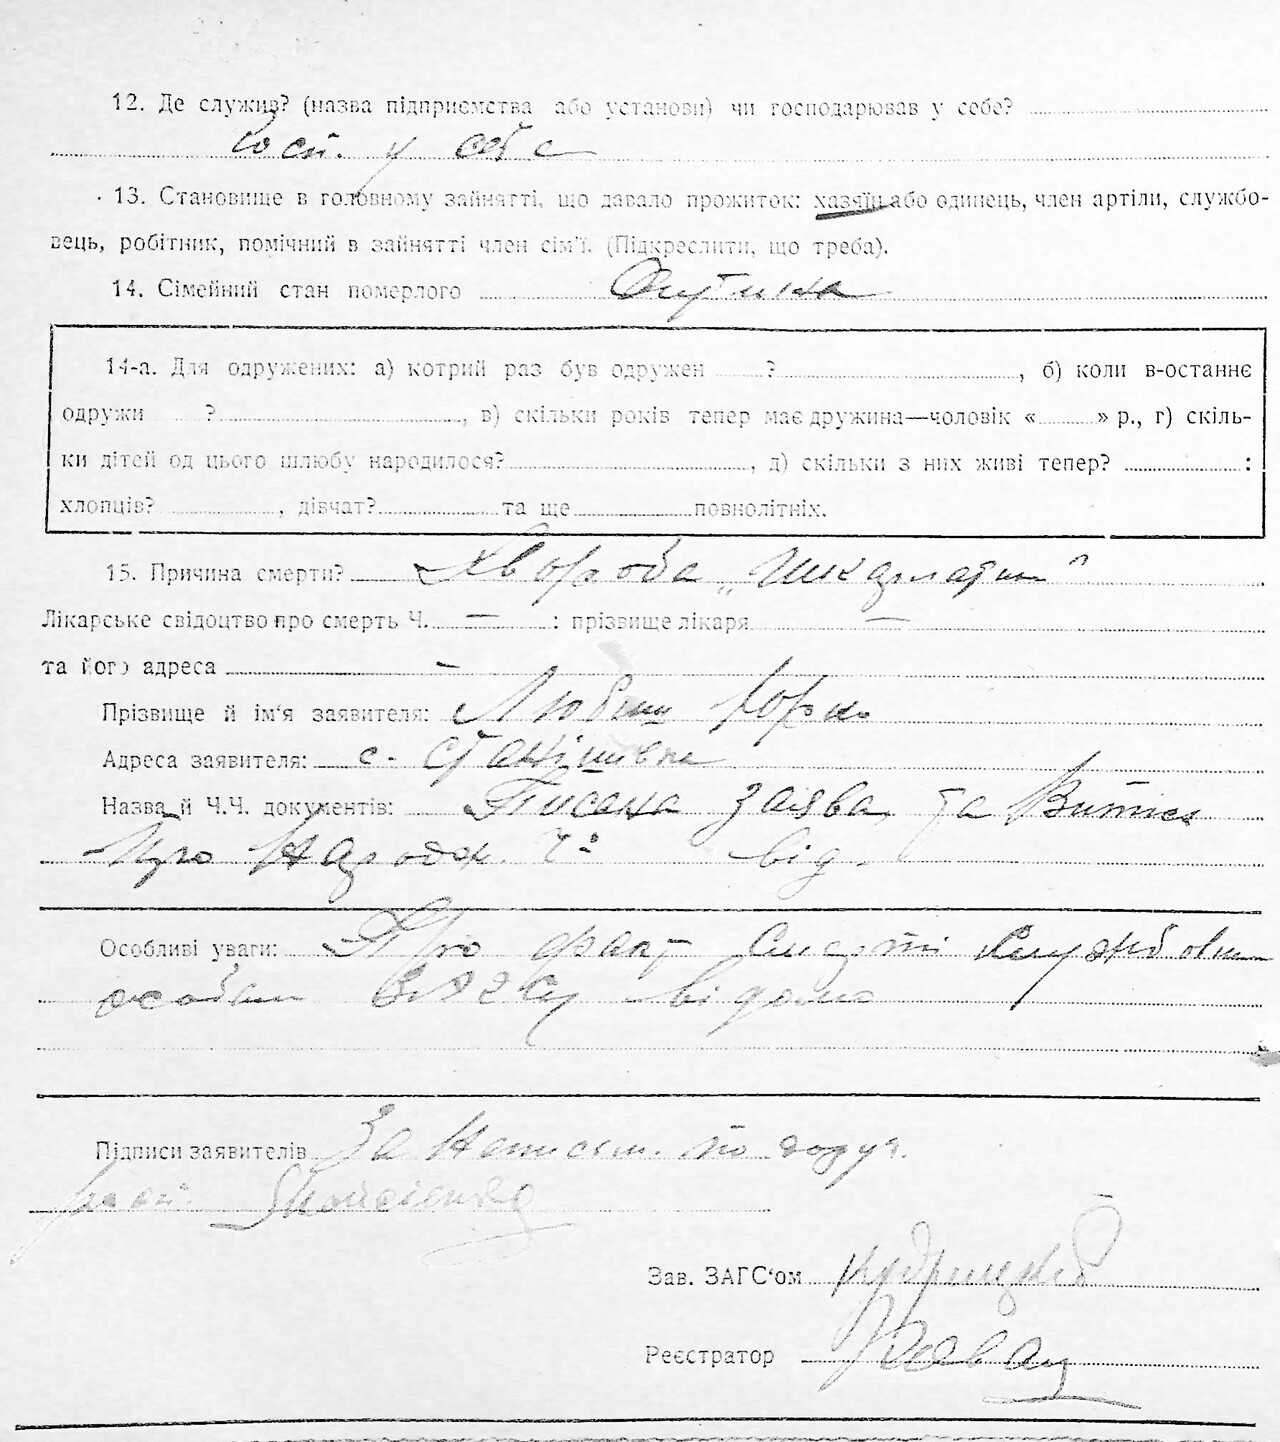 12. Де служив? (назва підприємства або установи) чи господарював у себе?
у себе
13. Становище в головному зайнятті, що давало прожиток: хазяїн або одинець, член артіли, службо-
вець, робітник, помічний в зайнятті член сім'ї. (Підкреслити, що треба).
14. Сімейний стан померлого
14-а. Для одружених: а) котрий раз був одружен ? , б) коли в-останнє
одружи ? , в) скільки років тепер має дружина—чоловік « » р., г) скіль-
ки дітей од цього шлюбу народилося? , д) скільки з них живі тепер? :
хлопців? , дівчат? та ще повнолітніх.
15. Причина смерти? Хвороба „Шкарлатин"
Лікарське свідоцтво про смерть Ч. — : прізвище лікаря —
та його адреса -
Прізвище й ім'я заявителя:
Адреса заявителя: с.
Назва й Ч.Ч. документів: Писана заява та Витяг
Про Народж. Ч: від.
Особливі уваги: Про факт смерти службовим
особам ЗАГСу відомо
Підписи заявителів За
Зав. ЗАГС'ом
Реєстратор